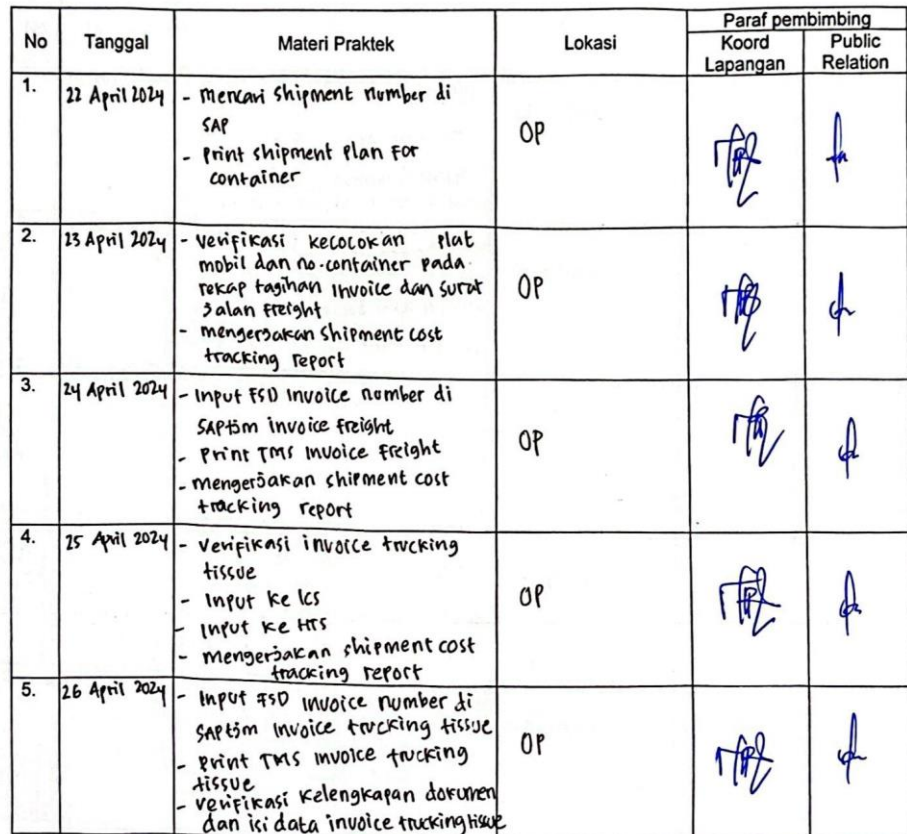 No Tanggal Materi Praktek Lokasi Paraf pembimbing
Koord Lapangan Public Relation
1. 22 April 2024 - Mencari Shipment Number di
SAP
- Print Shipment Plan For
container
OP
2. 23 April 2024 - Verifikasi kecocokan Plat
mobil dan no.container pada
rekap tagihan Invoice dan surat
Jalan Freight
- mengerjakan Shipment cost
tracking report
OP
3. 24 April 2024 - Input FSD Invoice number di
invoice freight
- Print TMS Invoice Freight
- mengerjakan shipment cost
tracking report
OP
4. 25 April 2024 - Verifikasi invoice trucking
tissue
- Input ke Ics
- Input ke HTS
- mengerjakan shipment cost
tracking report
OP
5. 26 April 2024 - Input FSD Invoice number di
Invoice trucking tissue
- Print TMS Invoice trucking
tissue
- Verifikasi Kelengkapan dokumen
dan isi data invoice trucking tissue
OP